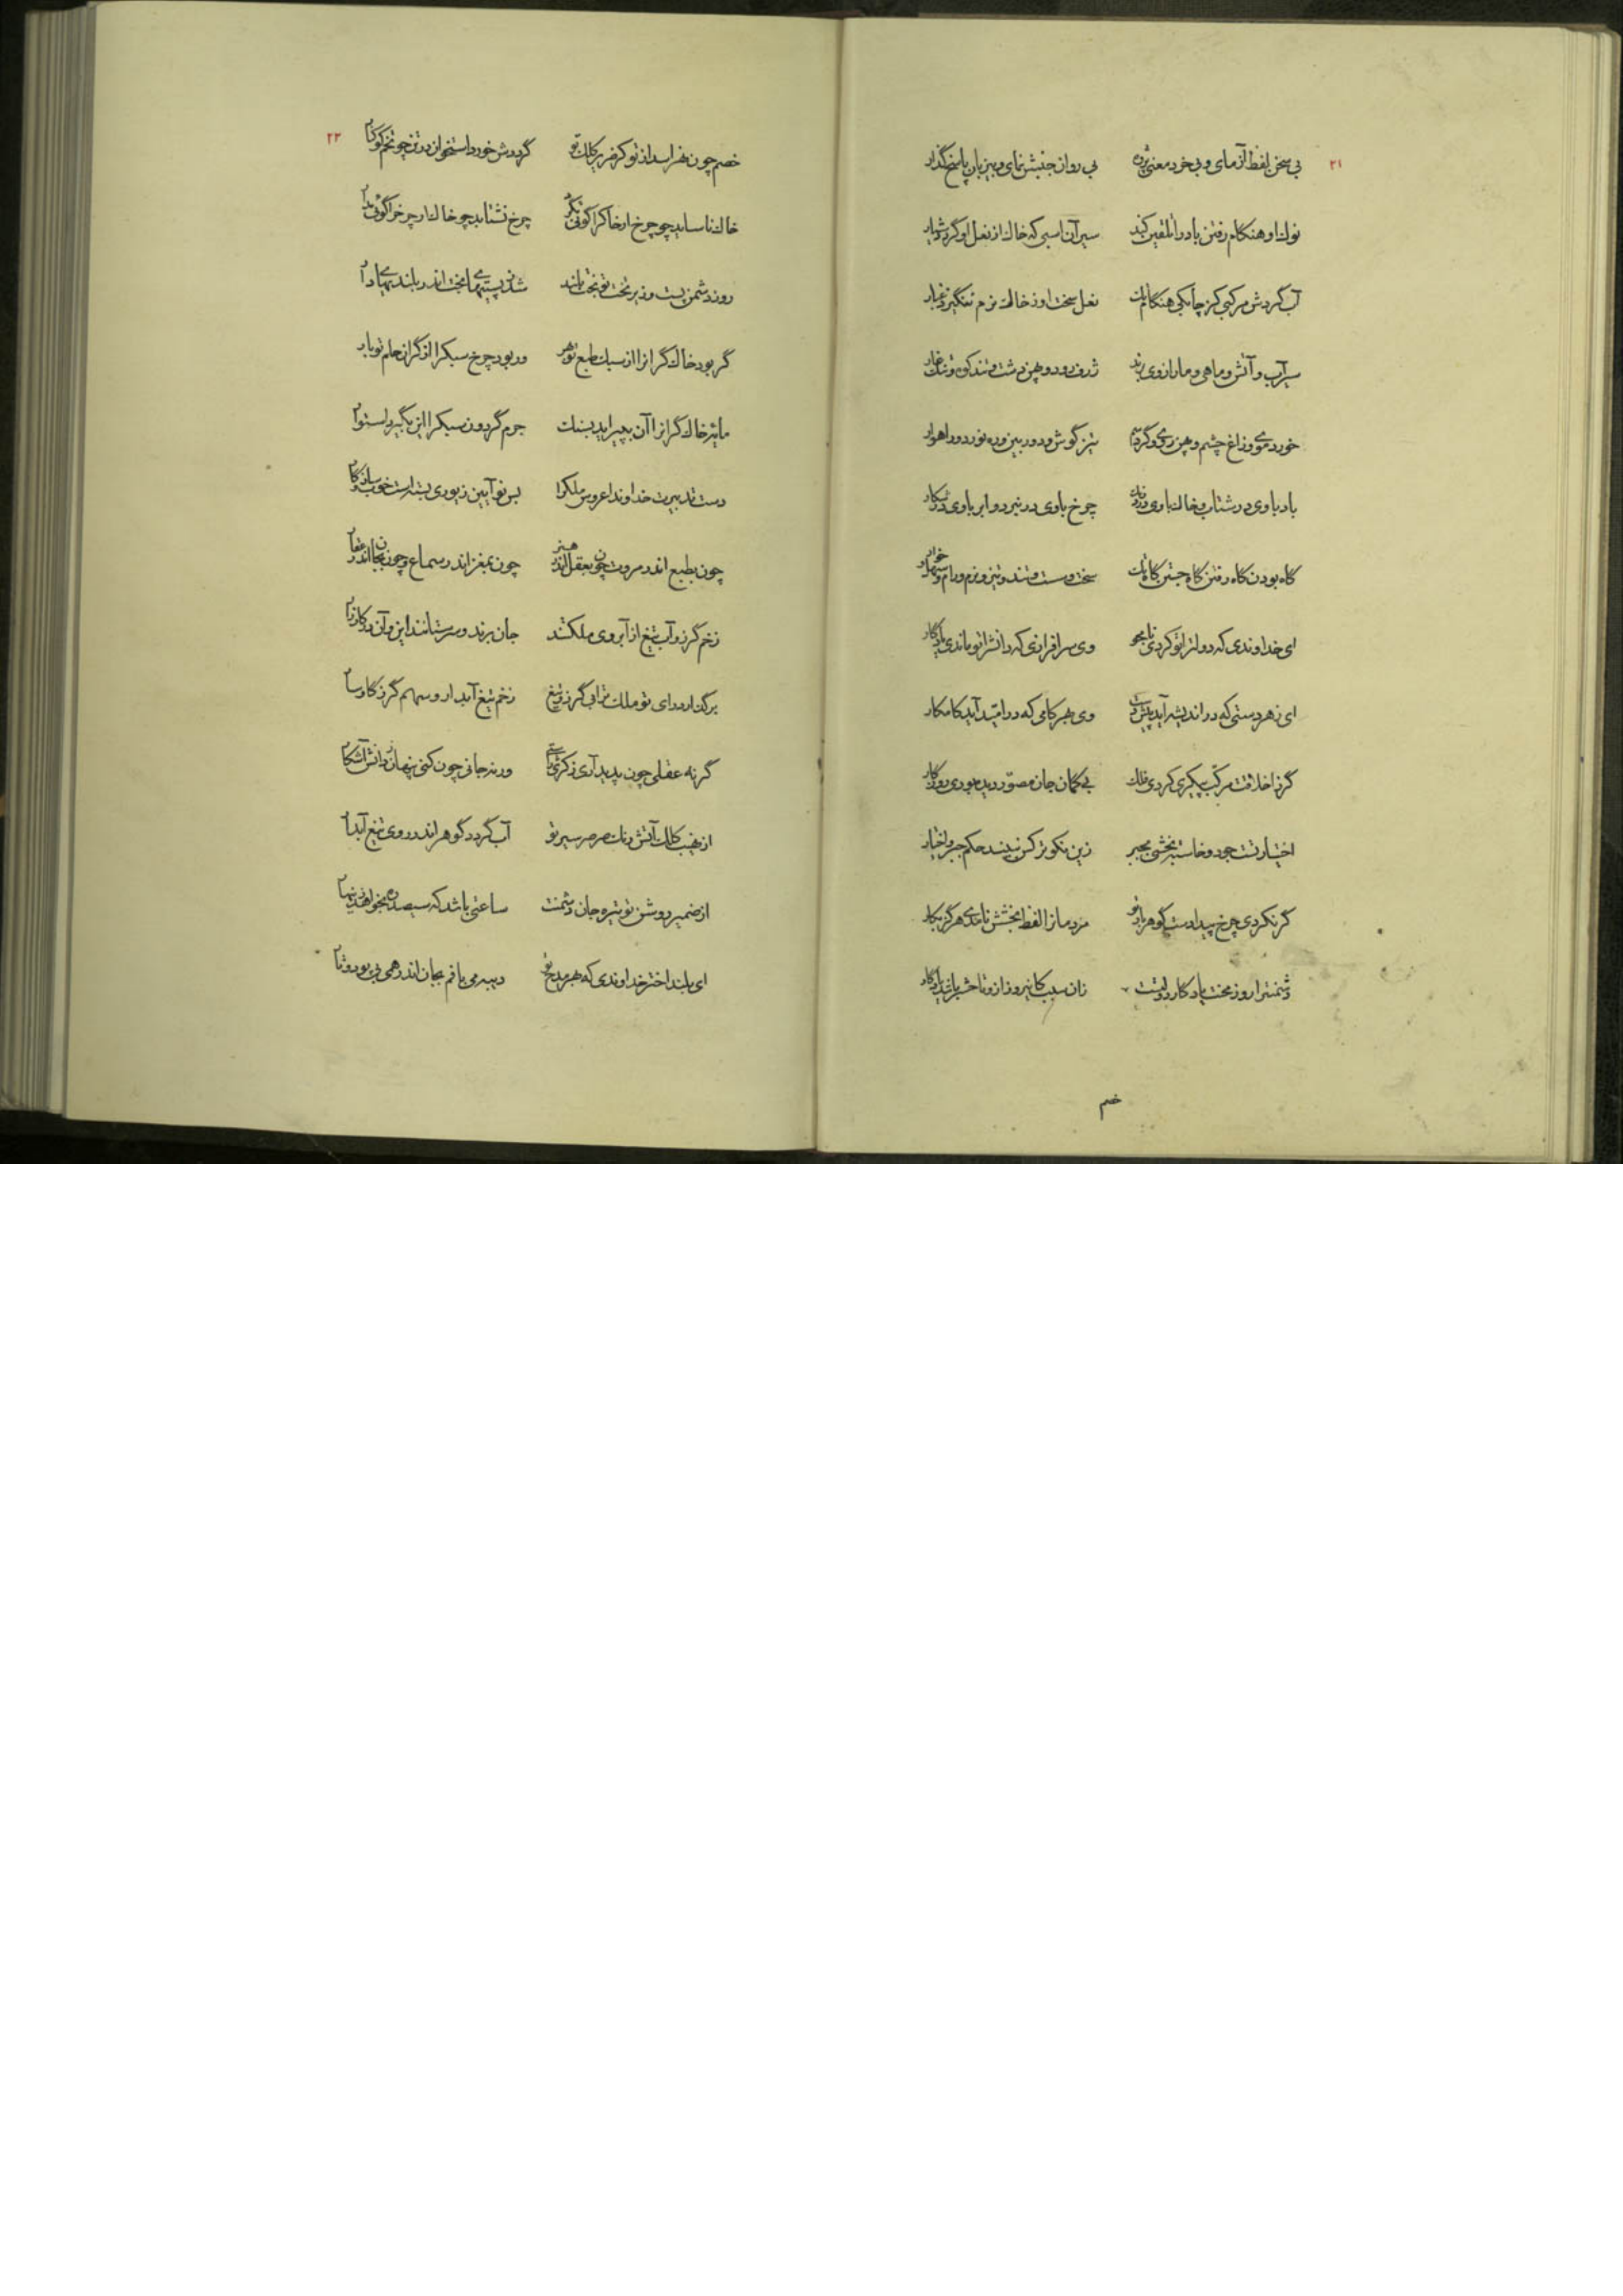 ۲۱
بی سخن لفظ آزمای و بی خرد معنی پژوه بی روان جنبش نمای و بی زبان پاسخ گذار
نوک او هنکام رفتن باد را تلقین کند سیر آن اسبی که خاک از نعل او گردد
آب گردش مرکبی کز چابکی هنکام تک نعل سخت او ز خاک نرم ننگیزد غبار
سیر آب و آتش و ماهی و مار از وی برند ژرف رود و پهن دشت و تند کوه و تنک غار
خورد موی و زاغ چشم و پهن روی و گرد سم تیز گوش و دور بین و ره نورد و راهوار
باد باوی در شتاب و خاک باوی در درنک چرخ باوی در نبرد و ابر باوی در شکار
کاه بودن کاه رفتن کاه جستن کاه تک سخت و سست و تند و تیز و نرم و رام و سهل و خوار
ای خداوندی که دولترا تو کردی نامجو وی سرافرازی که دانشرا تو ماندی یادکار
ای ز هر دستی که در اندیشه آید پیش دست وی بهر کامی که در امید آید کامکار
گر ز اخلاقت مرکب پیکری کردی فلک بی گمان جان مصور دیده بودی روزکار
اختیار تست جود و خاسته بخشی بجبر زین نکوتر کس نبیند حکم جبر و اختیار
گر نکردی چرخ پیدا دست گوهر بار تو مردمانرا لفظ بخشش نامدی هرگز بکار
دشمنترا روز محنت یادکار دولتست زان سبب کان روز ازو تا حشر باشد یادکار
خصم
۲۲
خصم چون نهراسد از تو کز فزع کلک تو گرددش خورد استخوان در تن چو تخم کوکنار
خاک ناساید چو چرخ ار خاکرا گوئی بگرد چرخ نشتابد چو خاک ار چرخرا گوئی بدار
روز دشمن پست و زیر تخت تو بخت بلند شد ز پستیهای بخت اندر بلندیهای دار
گر بود خاک گرانرا از سبک طبع تو بهر ور بود چرخ سبکرا از گران حلم تو بار
مایه خاک گرانرا آن بپیراید سبک جرم گردون سبکرا این بگیرد استوار
دست تدبیرت خداوندا عروس ملکرا بس نو آیین زیوری بسته است خوب و سازکار
چون بطبع اندر مروت چون بعقل اندر هنر چون بمغز اندر سماع و چون بجان اندر عقار
زخم گرز و آب تیغ از آبروی ملک شد جان برند و سر ستانند این و آن در کارزار
برگذارد رای تو ملک ترا بی گرز و تیغ زخم تیغ آبدار و سهم گرز گاوسار
گر نه عقلی چون پدید آری ز کژی راستی ور نه جانی چون کنی پنهان دانش آشکار
از نهیب کلک آتش رنک صرصر سیر تو آب گردد گوهر اندر روی تیغ آبدار
از ضمیر روشن تو تیره جان دشمنت ساعتی باشد که سیصد ره نخواهد زینهار
ای بلند اختر خداوندی که بهر مدح تو دیبه می بافم بجان اندر همی بی پود و تار